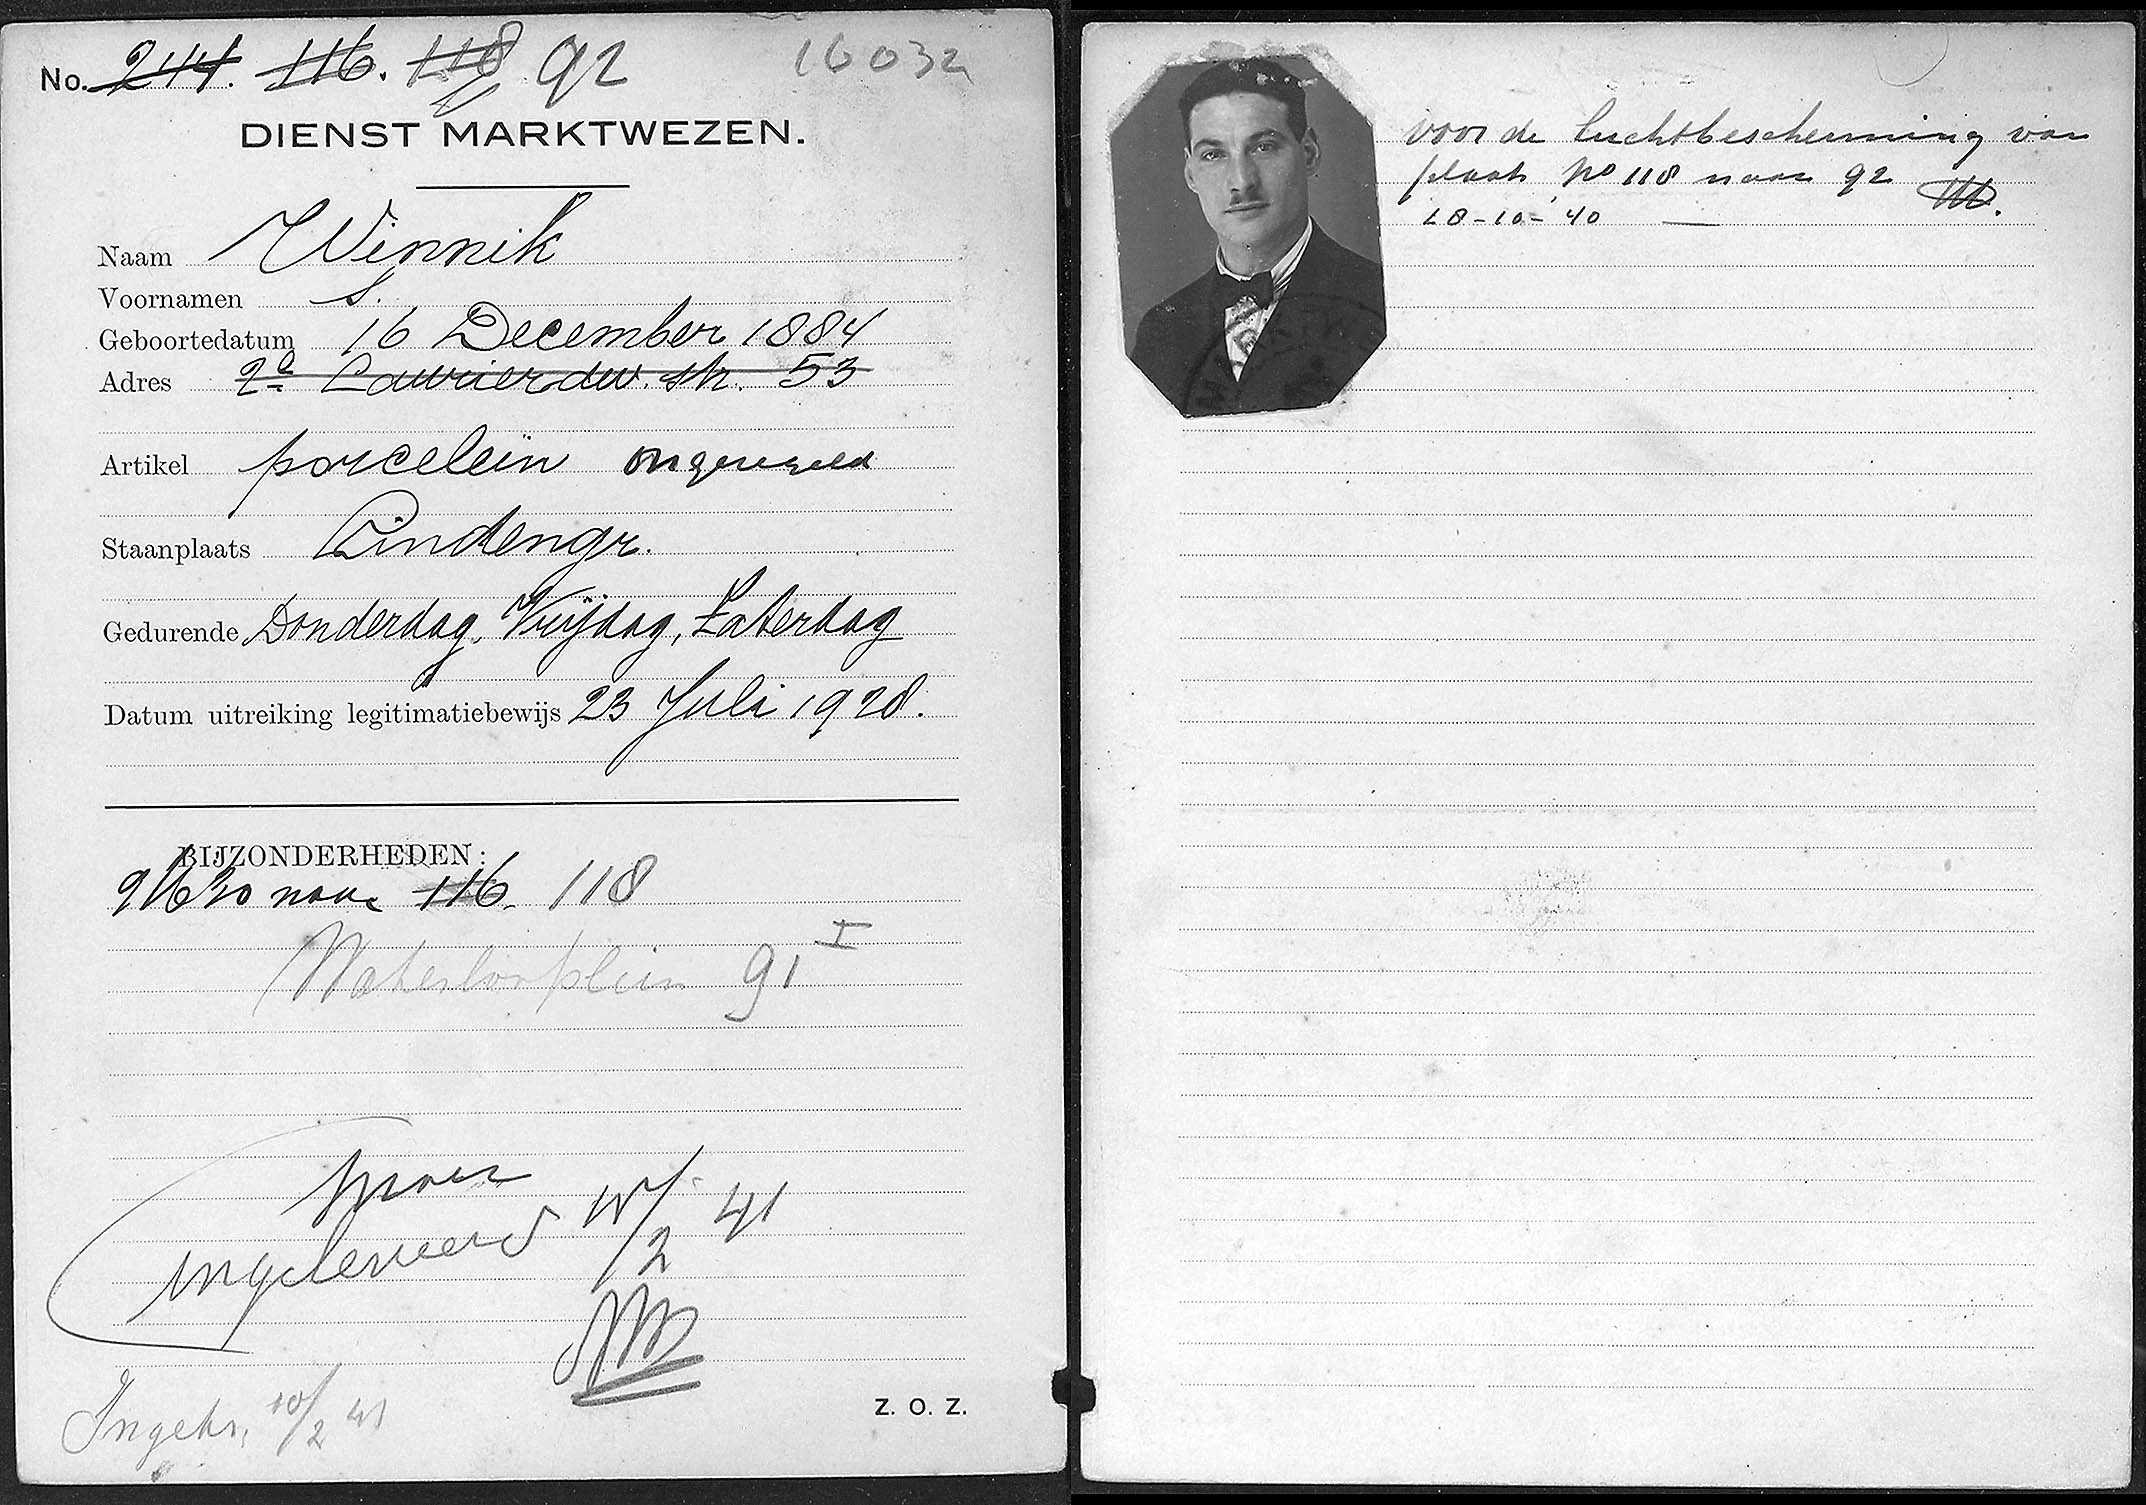 No. 244. 116. 118 92 16032
DIENST MARKTWEZEN.
Naam Winnik
Voornamen S.
Geboortedatum 16 December 1884
Adres 2e Laurierdw. str. 53
Artikel porcelein ongeregeld
Staanplaats Lindengr.
Gedurende Donderdag, Vrijdag, Zaterdag
Datum uitreiking legitimatiebewijs 23 Juli 1928.
BIJZONDERHEDEN:
naar 116. 118
Waterlooplein 91 I
ingeleverd /2 41
Ingetr. 10/2 41
Z. O. Z.
voor de luchtbescherming van
plaats No 118 naar 92
18-10-'40